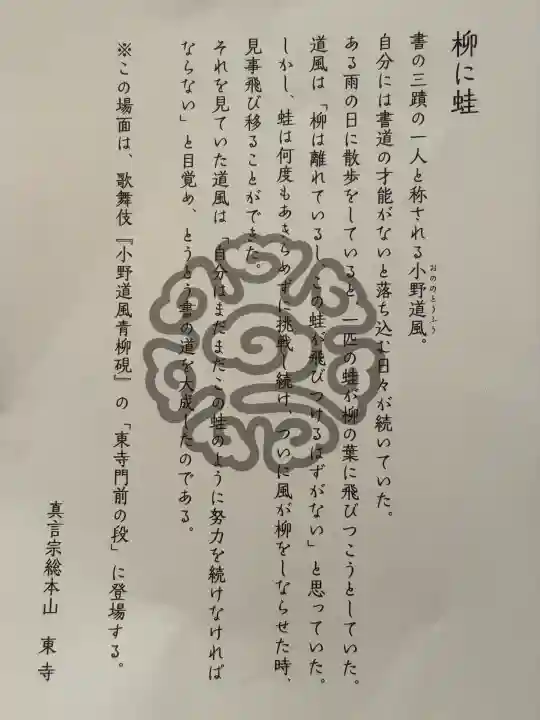 柳に蛙
書の三蹟の一人と称される小野道風。
おののとうふう
自分には書道の才能がないと落ち込む日々が続いていた。
ある雨の日に散歩をしていると、一匹の蛙が柳の葉に飛びつこうとしていた。
道風は「柳は離れているし、この蛙が飛びつけるはずがない」と思っていた。
しかし、蛙は何度もあきらめずに挑戦し続け、ついに風が柳をしならせた時、
見事飛び移ることができた。
それを見ていた道風は「自分はまだまだこの蛙のように努力を続けなければ
ならない」と目覚め、とうとう書の道を大成したのである。
※この場面は、歌舞伎『小野道風青柳硯』の「東寺門前の段」に登場する。
真言宗総本山 東寺